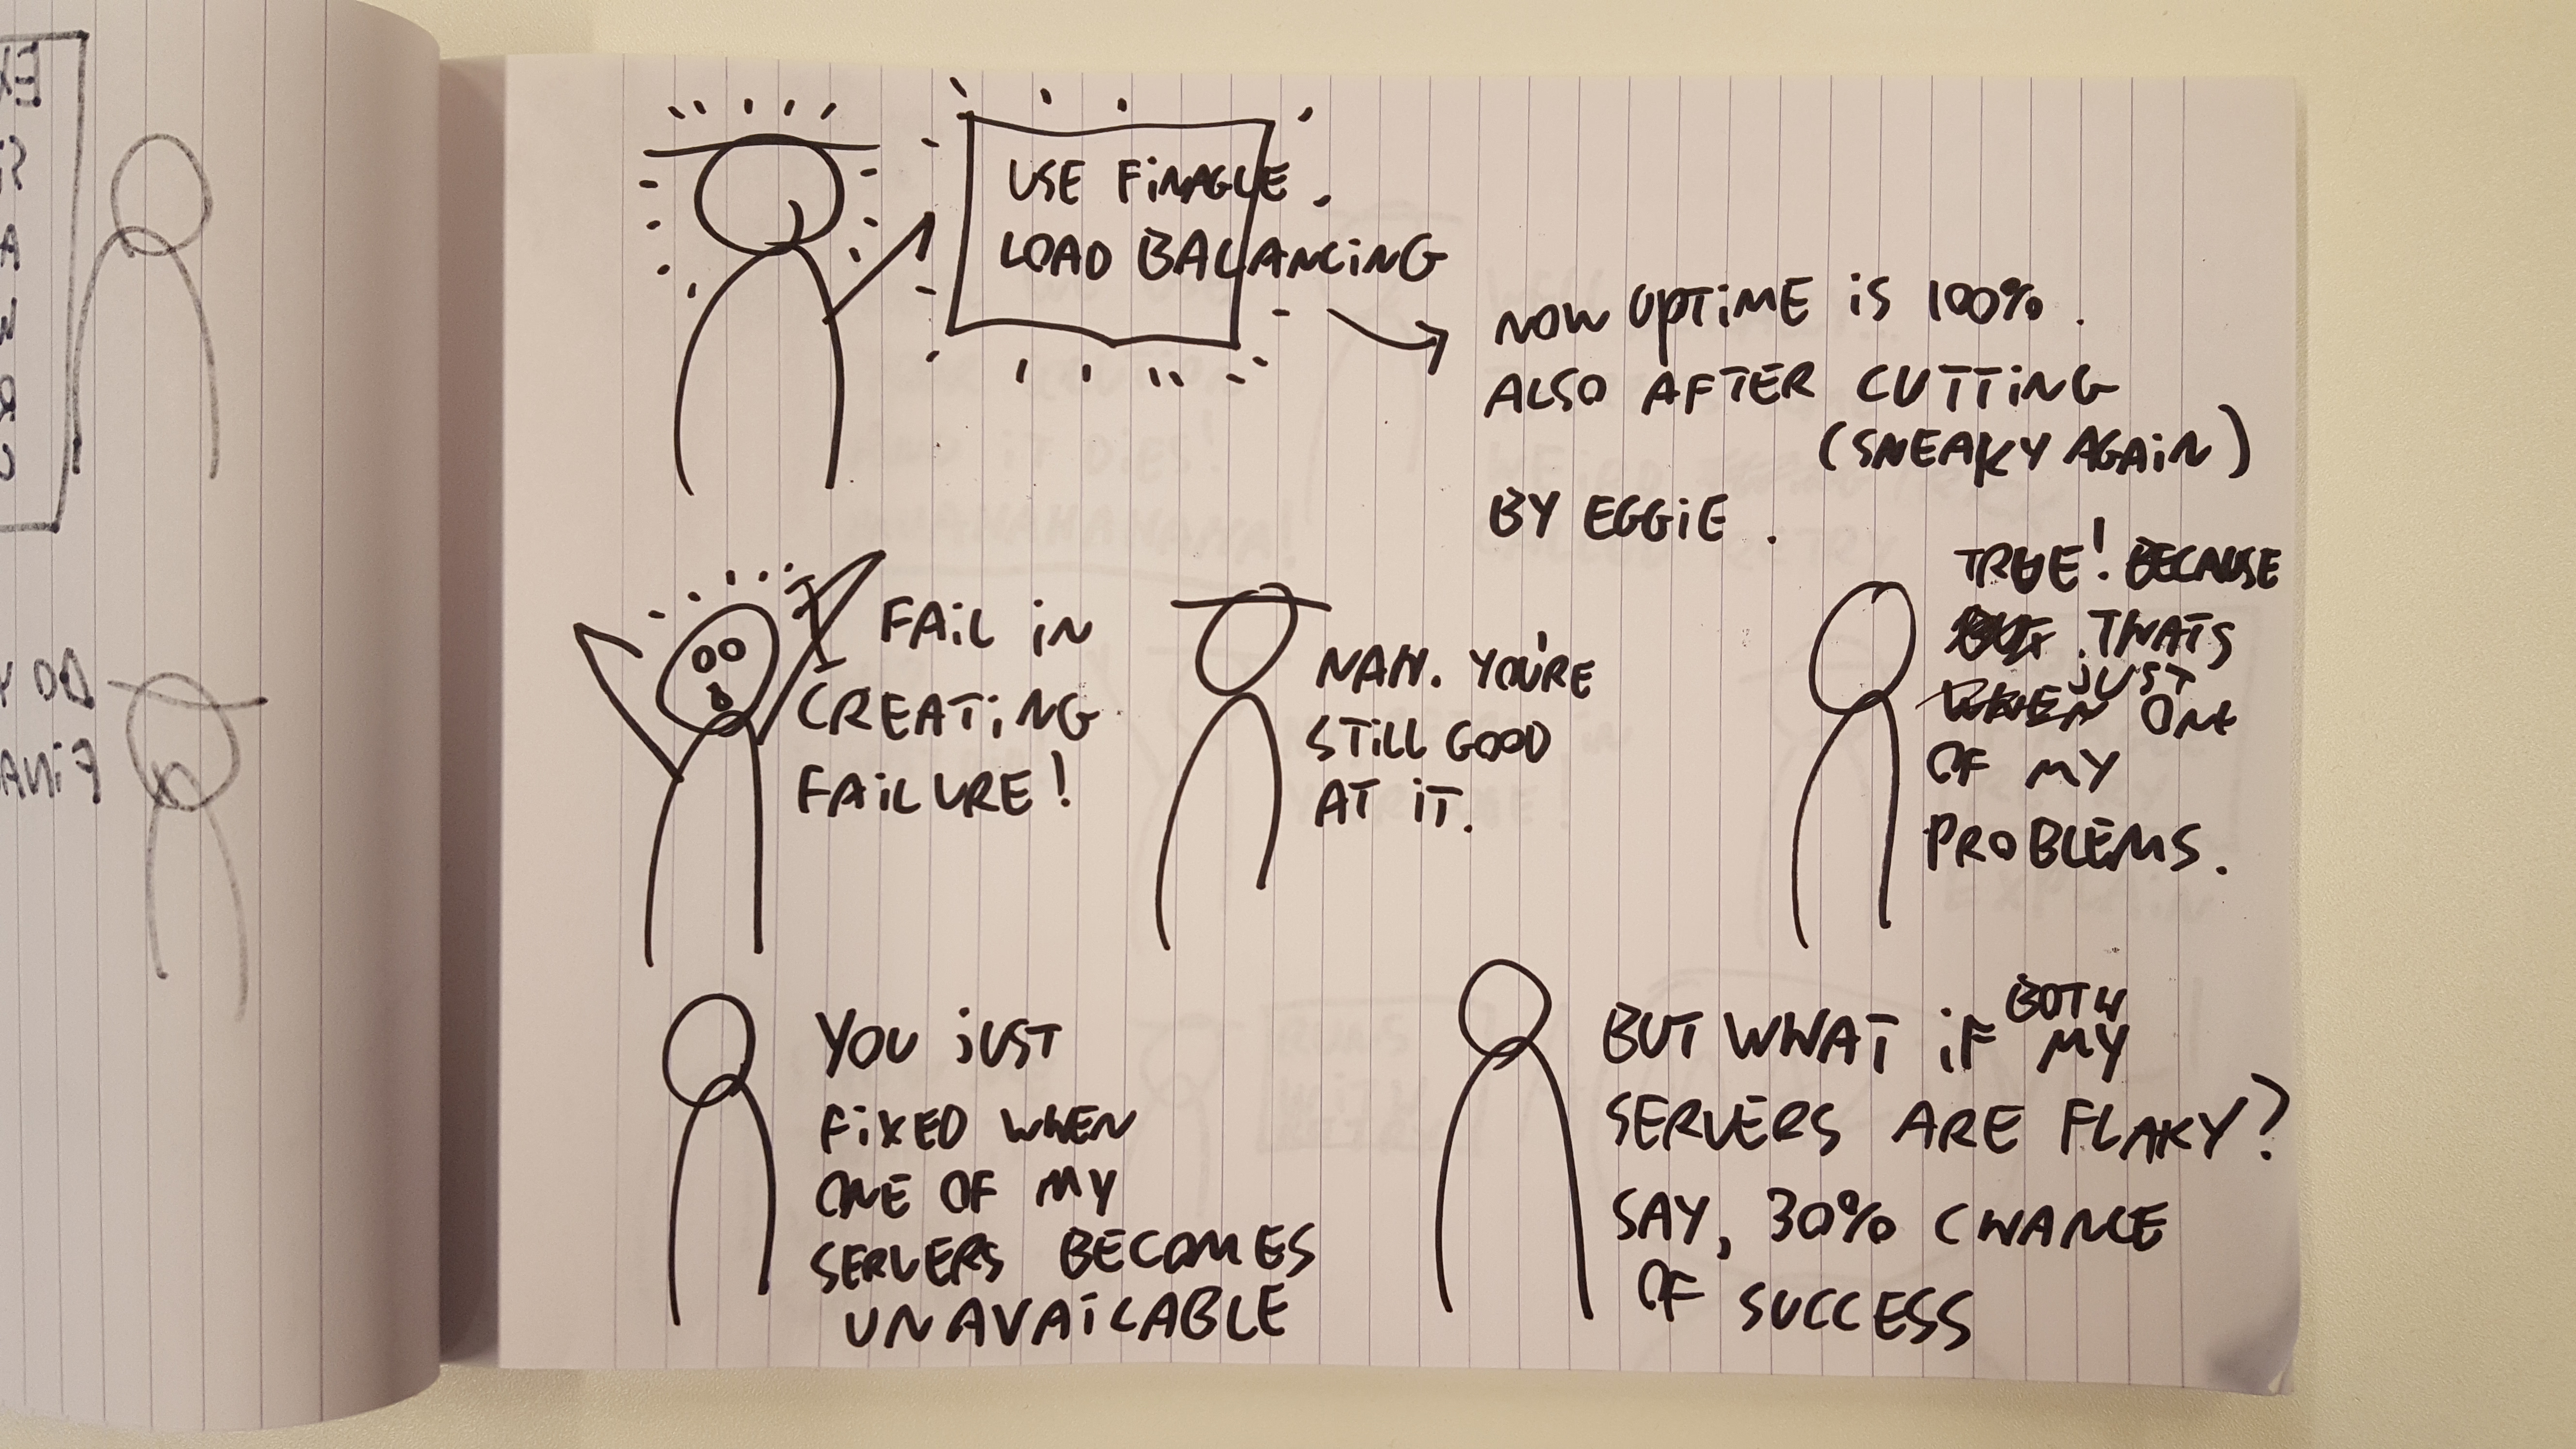 USE FINAGLE
LOAD BALANCING
NOW UPTIME IS 100%.
ALSO AFTER CUTTING
(SNEAKY AGAIN)
BY EGGIE.
FAIL IN
CREATING
FAILURE!
NAH. YOU'RE
STILL GOOD
AT IT.
TRUE! BECAUSE
THAT'S
JUST ONE
OF MY
PROBLEMS.
YOU JUST
FIXED WHEN
ONE OF MY
SERVERS BECOMES
UNAVAILABLE
BUT WHAT IF BOTH MY
SERVERS ARE FLAKY?
SAY, 30% CHANCE
OF SUCCESS
DO
FINA